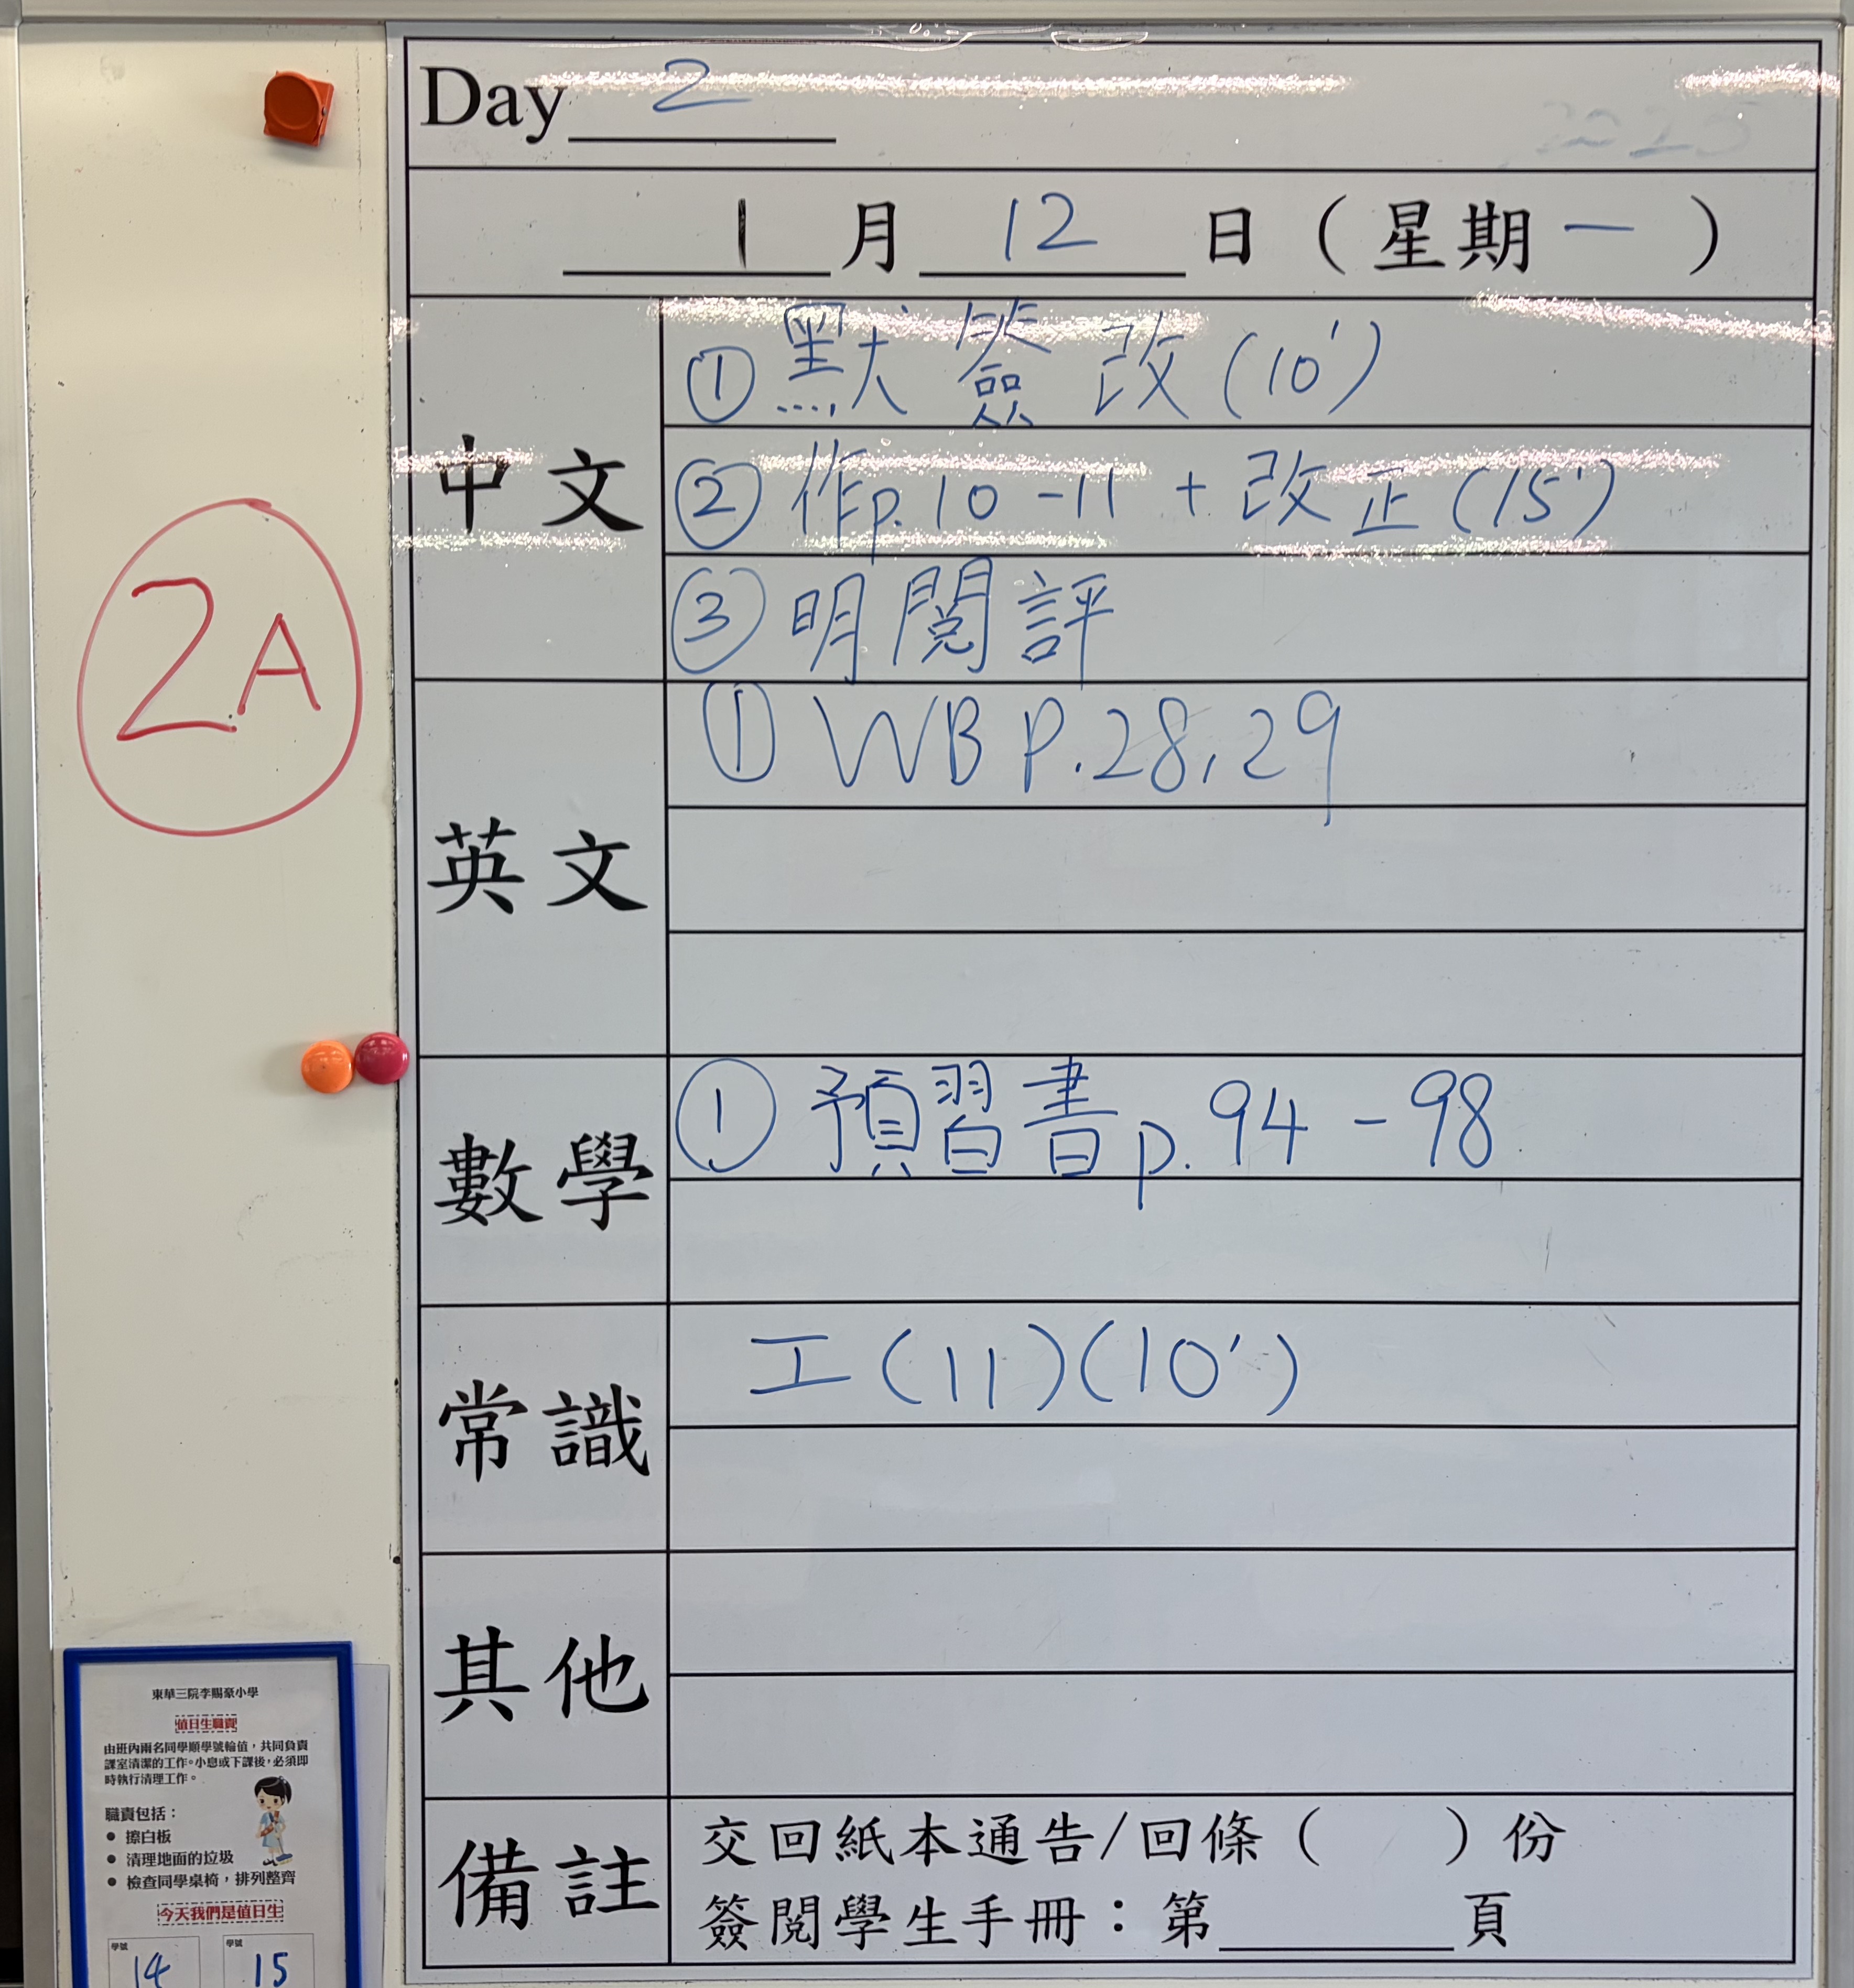 Day 2
2025
1月12日(星期一)
中文
①默簽改(10')
②作p.10-11+改正(15')
③明閱評
英文
①WB P.28,29
數學
①預習書p.94-98
常識
工(11)(10')
其他
備註
交回紙本通告/回條( )份
簽閱學生手冊:第____頁
2A
東華三院李賜豪小學
值日生職責
由班內兩名同學順學號輪值,共同負責
課室清潔的工作。小息或下課後,必須即
時執行清理工作。
職責包括:
● 擦白板
● 清理地面的垃圾
● 檢查同學桌椅,排列整齊
今天我們是值日生
學號 學號
14 15